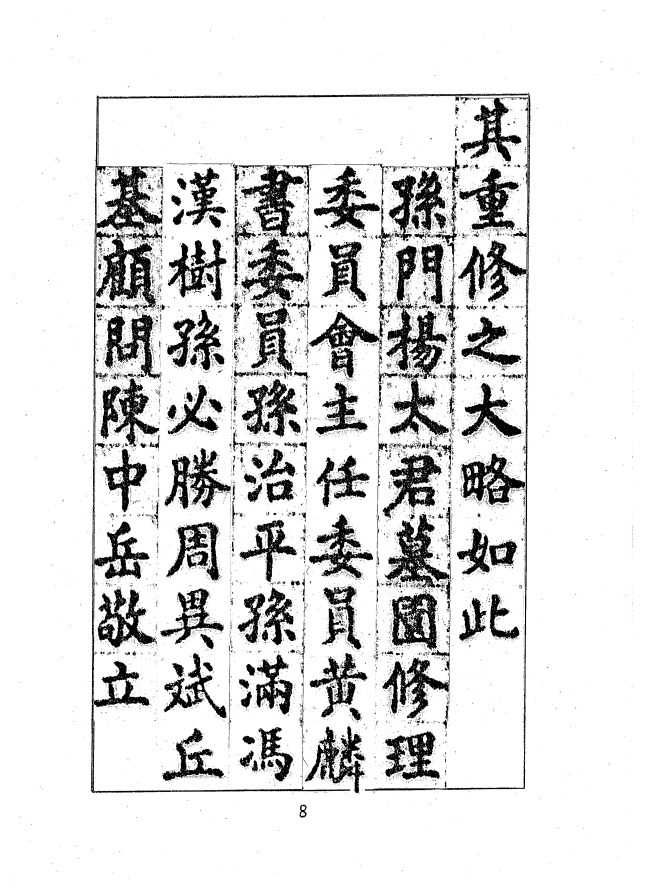 其重修之大略如此
孫門楊太君墓園修理
委員會主任委員黃麟
書委員孫治平孫滿馮
漢樹孫必勝周異斌丘
基顧問陳中岳敬立
8